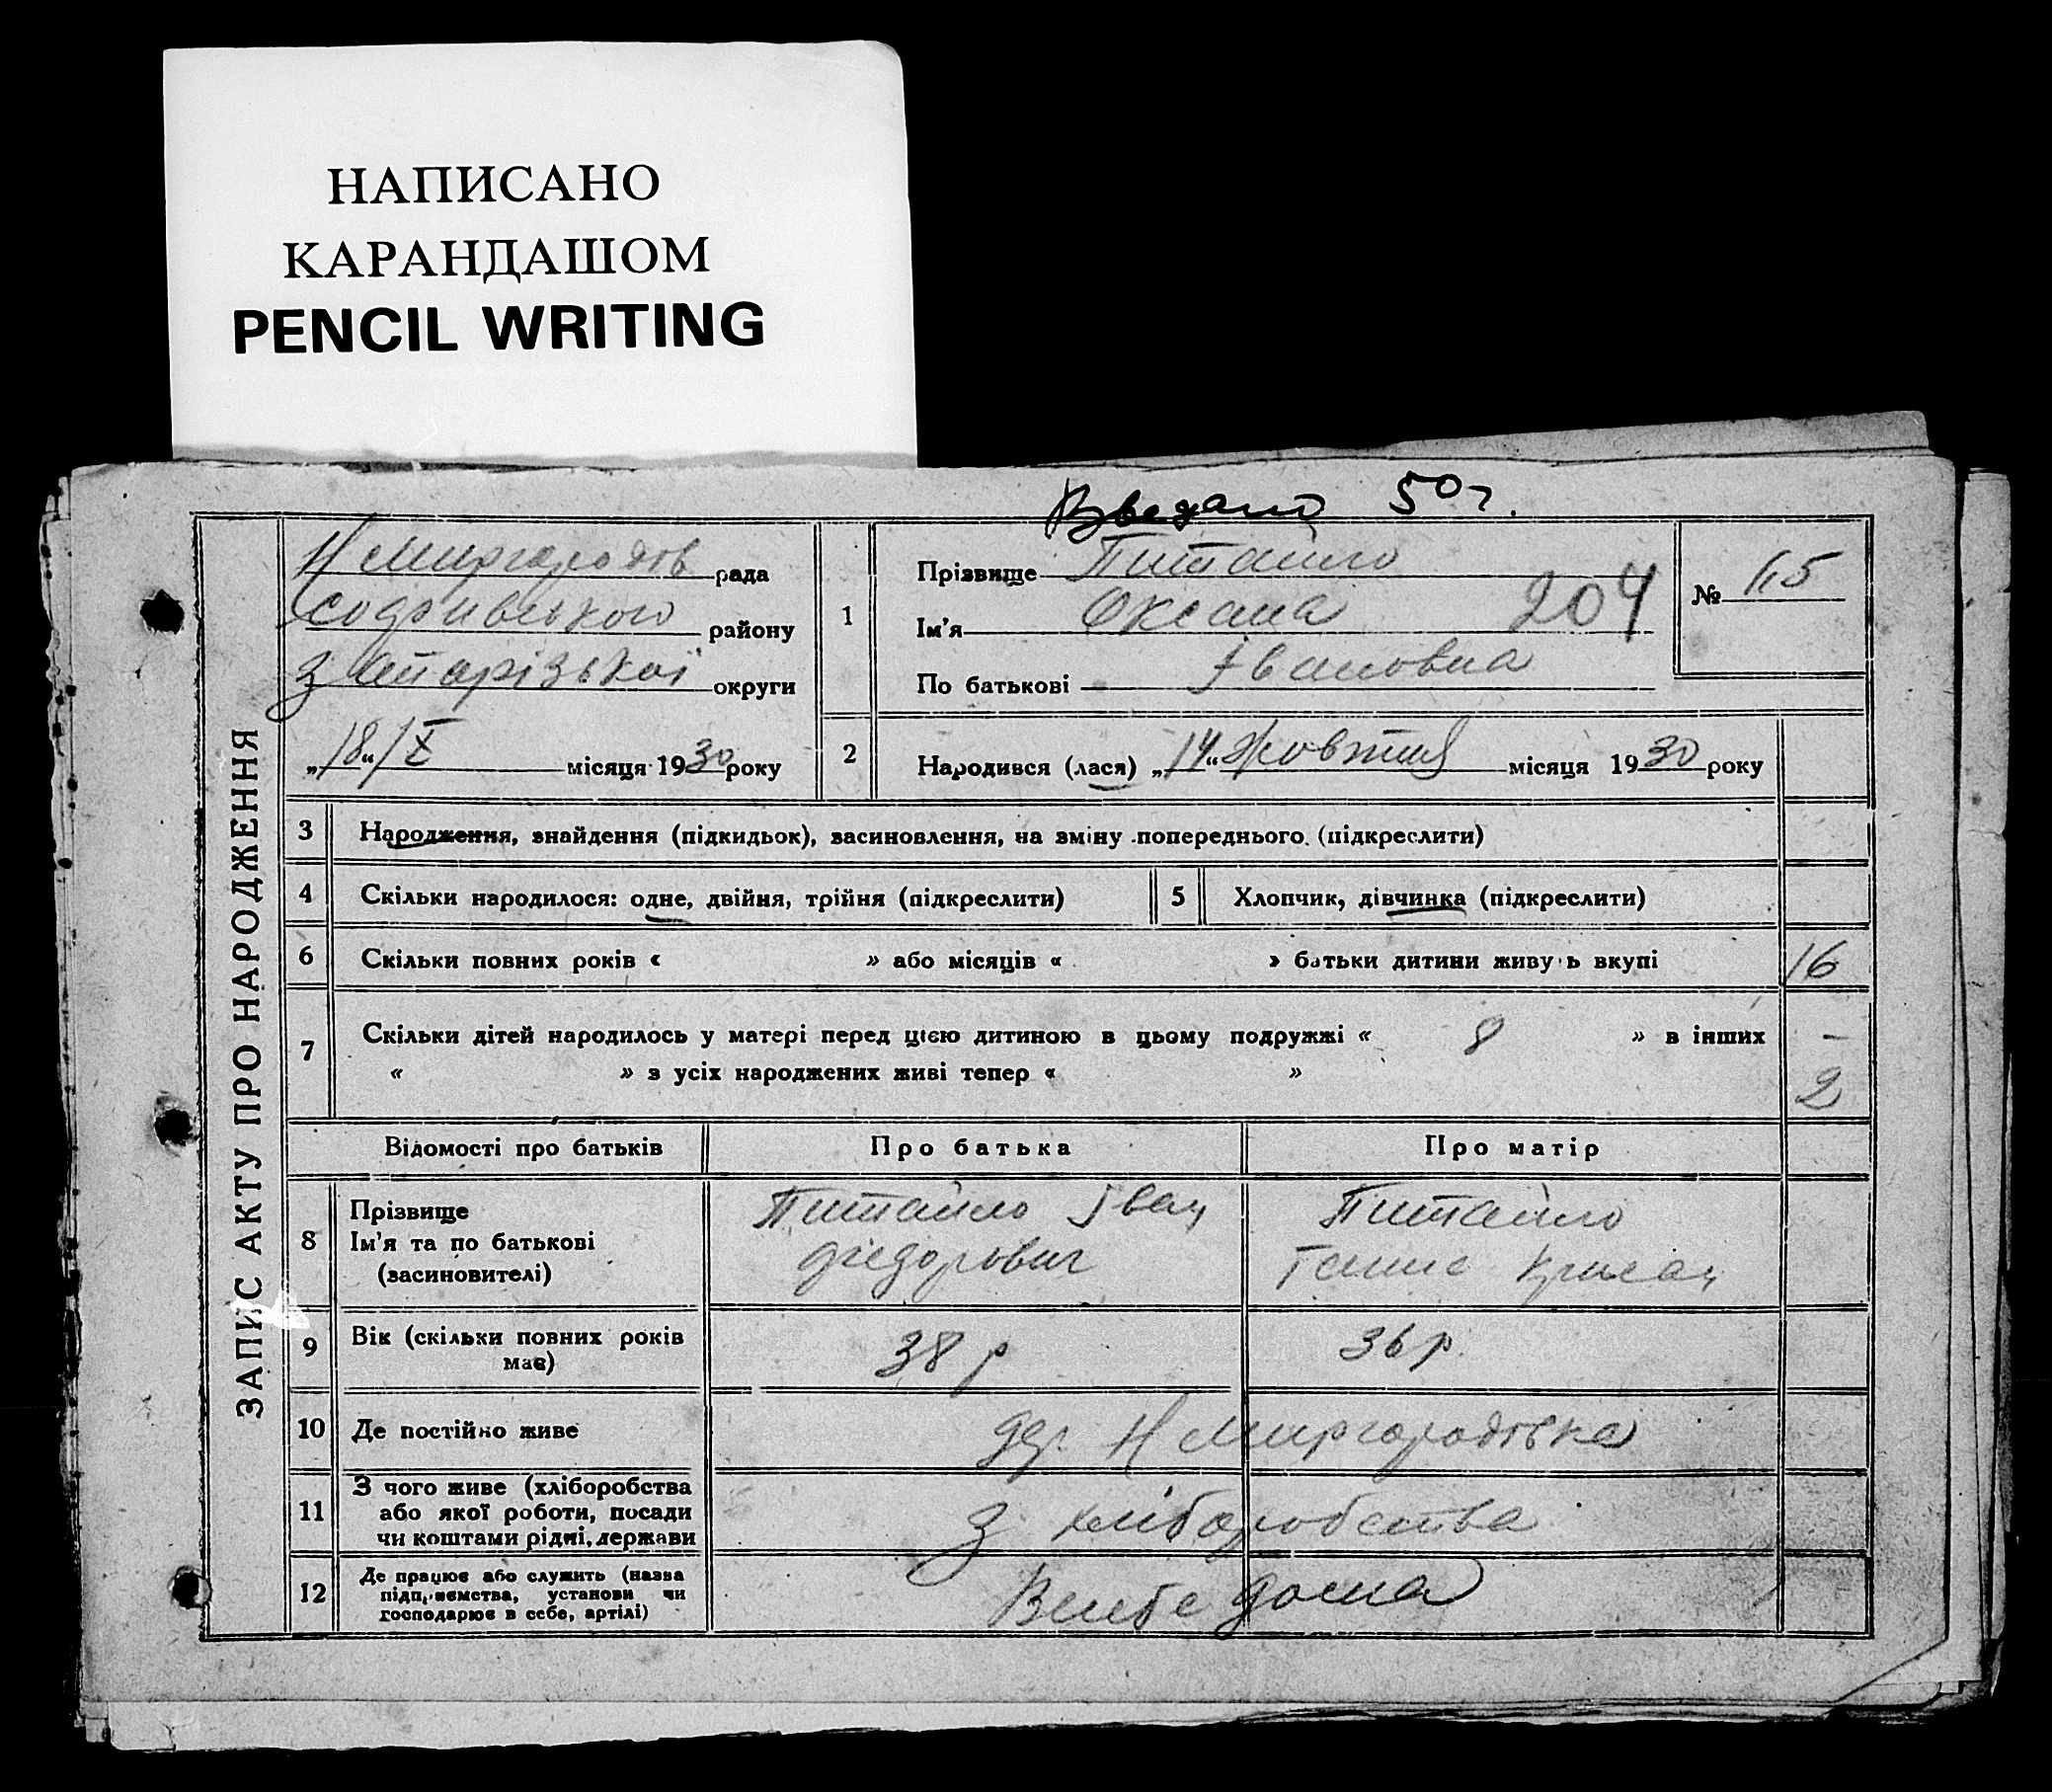 НАПИСАНО
КАРАНДАШОМ
PENCIL WRITING
50 г.
ЗАПИС АКТУ ПРО НАРОДЖЕННЯ
Н Миргородів рада
району
Запарізької округи
„18“ / X місяця 1930 року
1
Прізвище Питайло
Ім'я Оксана 204
По батькові Івановна
№ 65
2 Народився (лася) „14“ Жовтня місяця 1930 року
3 Народження, знайдення (підкидьок), засиновлення, на зміну попереднього. (підкреслити)
4 Скільки народилося: одне, двійня, трійня (підкреслити) 5 Хлопчик, дівчинка (підкреслити)
6 Скільки повних років « » або місяців « » батьки дитини живуть вкупі 16
7 Скільки дітей народилось у матері перед цією дитиною в цьому подружжі « 8 » в інших –
« » з усіх народжених живі тепер « » 2
Відомості про батьків Про батька Про матір
8 Прізвище
Ім'я та по батькові
(засиновителі)
Питайло Іван
Фіедорович
Питайло
Ганна
9 Вік (скільки повних років
має)
38 р 36 р.
10 Де постійно живе
дер. Н Миргородівка
11 З чого живе (хліборобства
або якої роботи, посади
чи коштами рідні, держави
З хліборобства
12 Де працює або служить (назва
підприємства, установи чи
господарює в себе, артілі)
В себе дома